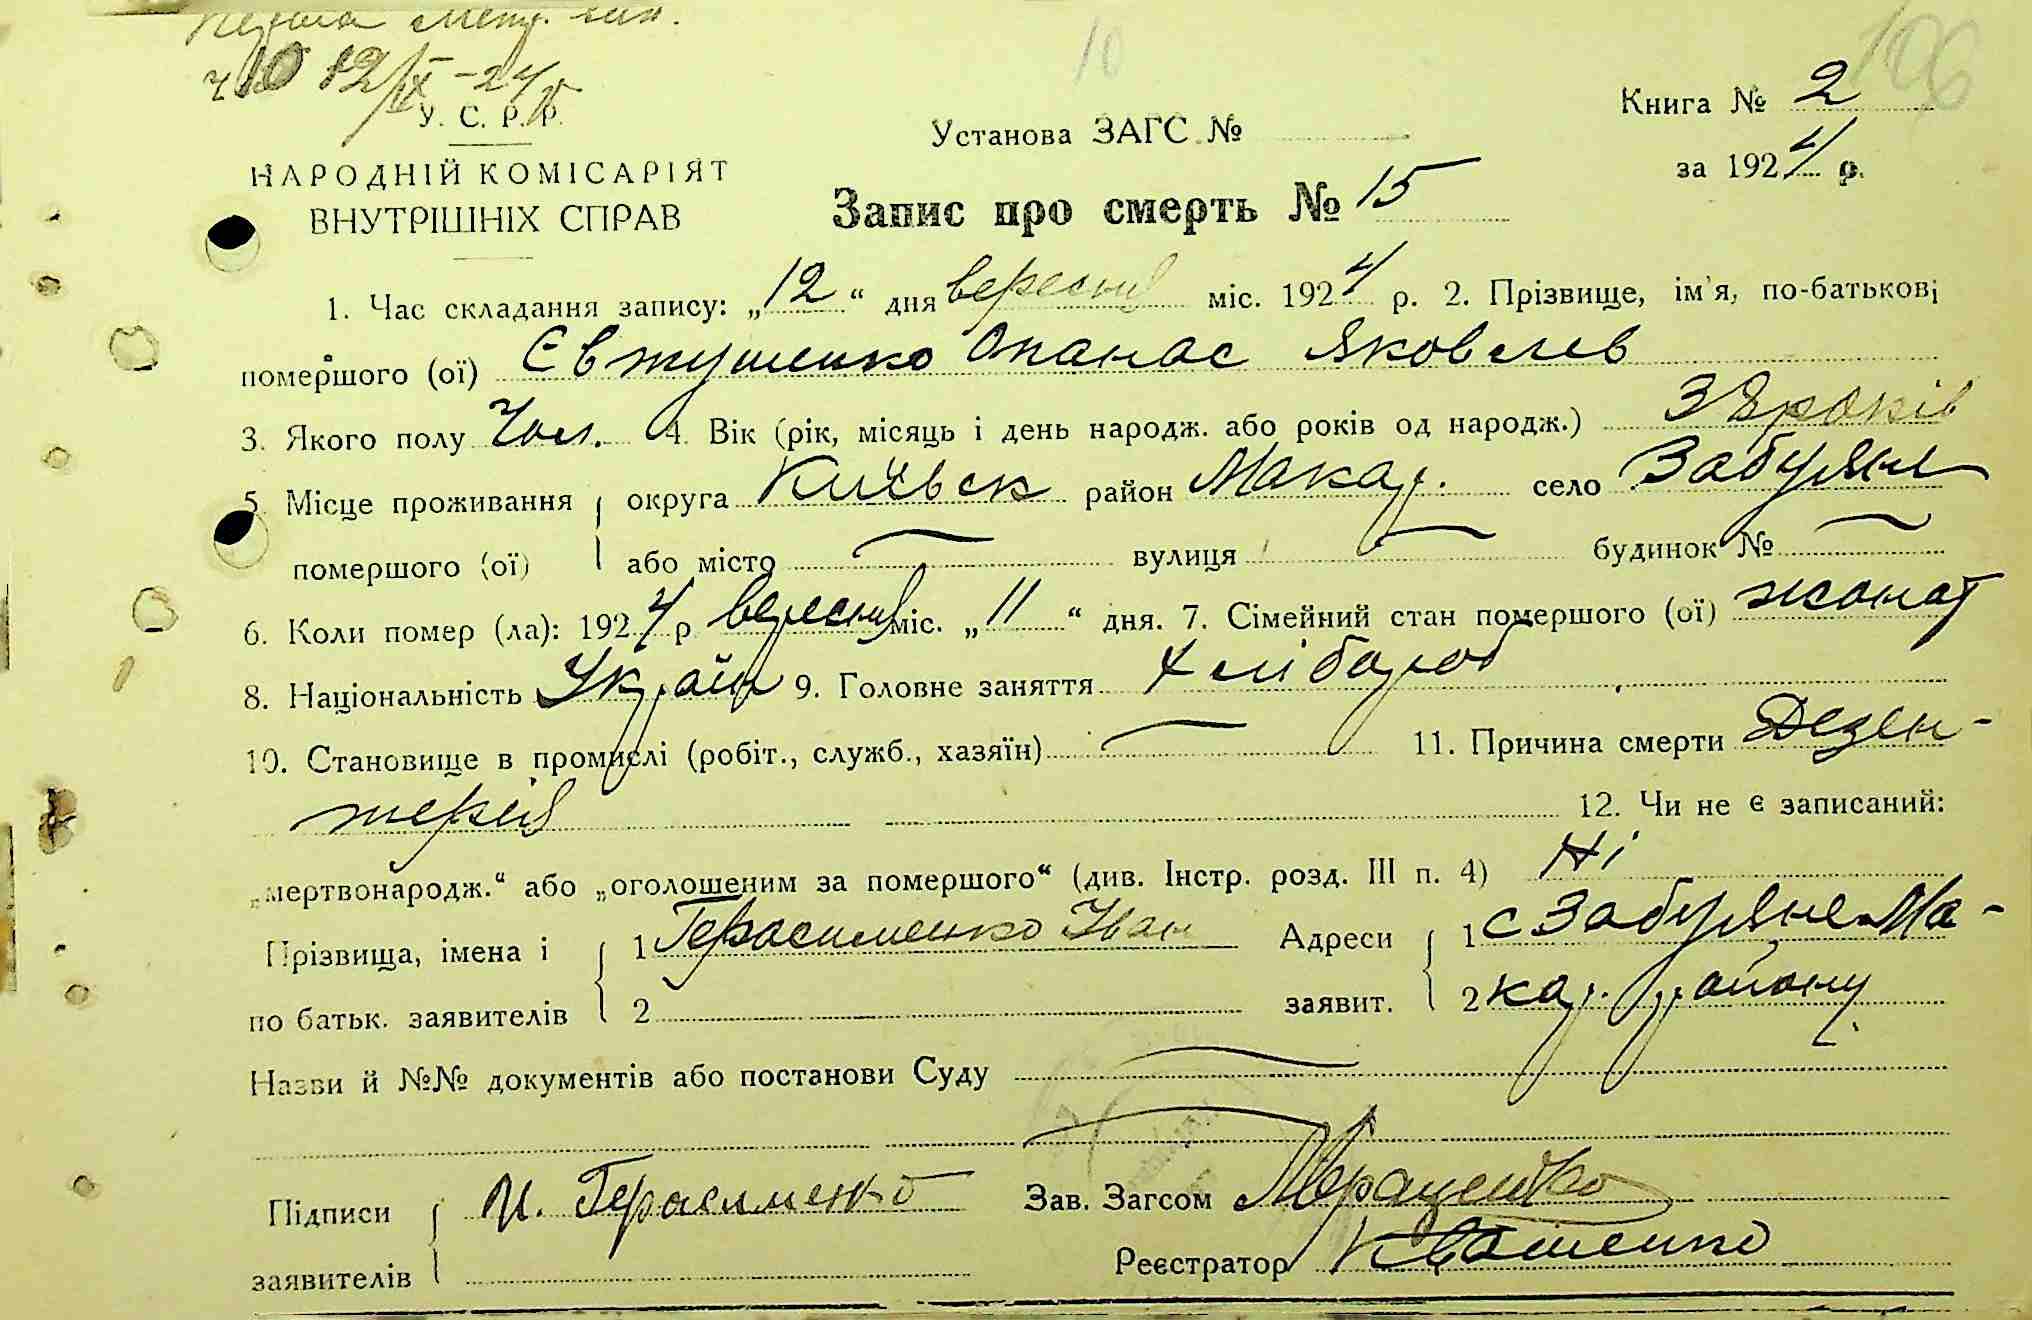 10
106
У. С. Р. Р.
НАРОДНІЙ КОМІСАРІЯТ
ВНУТРІШНІХ СПРАВ
Установа ЗАГС №
Запис про смерть № 15
Книга № 2
за 1924 р.
1. Час складання запису: „12“ дня вересня міс. 1924 р. 2. Прізвище, ім'я, по-батькові
помершого (ої) Євтушенко Опанас Яковлев
3. Якого полу Чол. 4. Вік (рік, місяць і день народж. або років од народж.) 38 років
5. Місце проживання округа Київськ район Макар. село Забуяня
помершого (ої) або місто — вулиця — будинок № —
6. Коли помер (ла): 1924 р вересня міс. „11“ дня. 7. Сімейний стан помершого (ої) жонат
8. Національність Україн 9. Головне заняття хлібороб
10. Становище в промислі (робіт., служб., хазяїн) — 11. Причина смерти Дезен-
терія 12. Чи не є записаний:
„мертвонародж.“ або „оголошеним за помершого“ (див. Інстр. розд. III п. 4) Ні
Прізвища, імена і 1 Герасименко Іван Адреси 1 с Забуяне Ма-
по батьк. заявителів 2 заявит. 2 кар. району
Назви й №№ документів або постанови Суду —
Підписи И. Герасименко Зав. Загсом
заявителів Реєстратор Квашенко